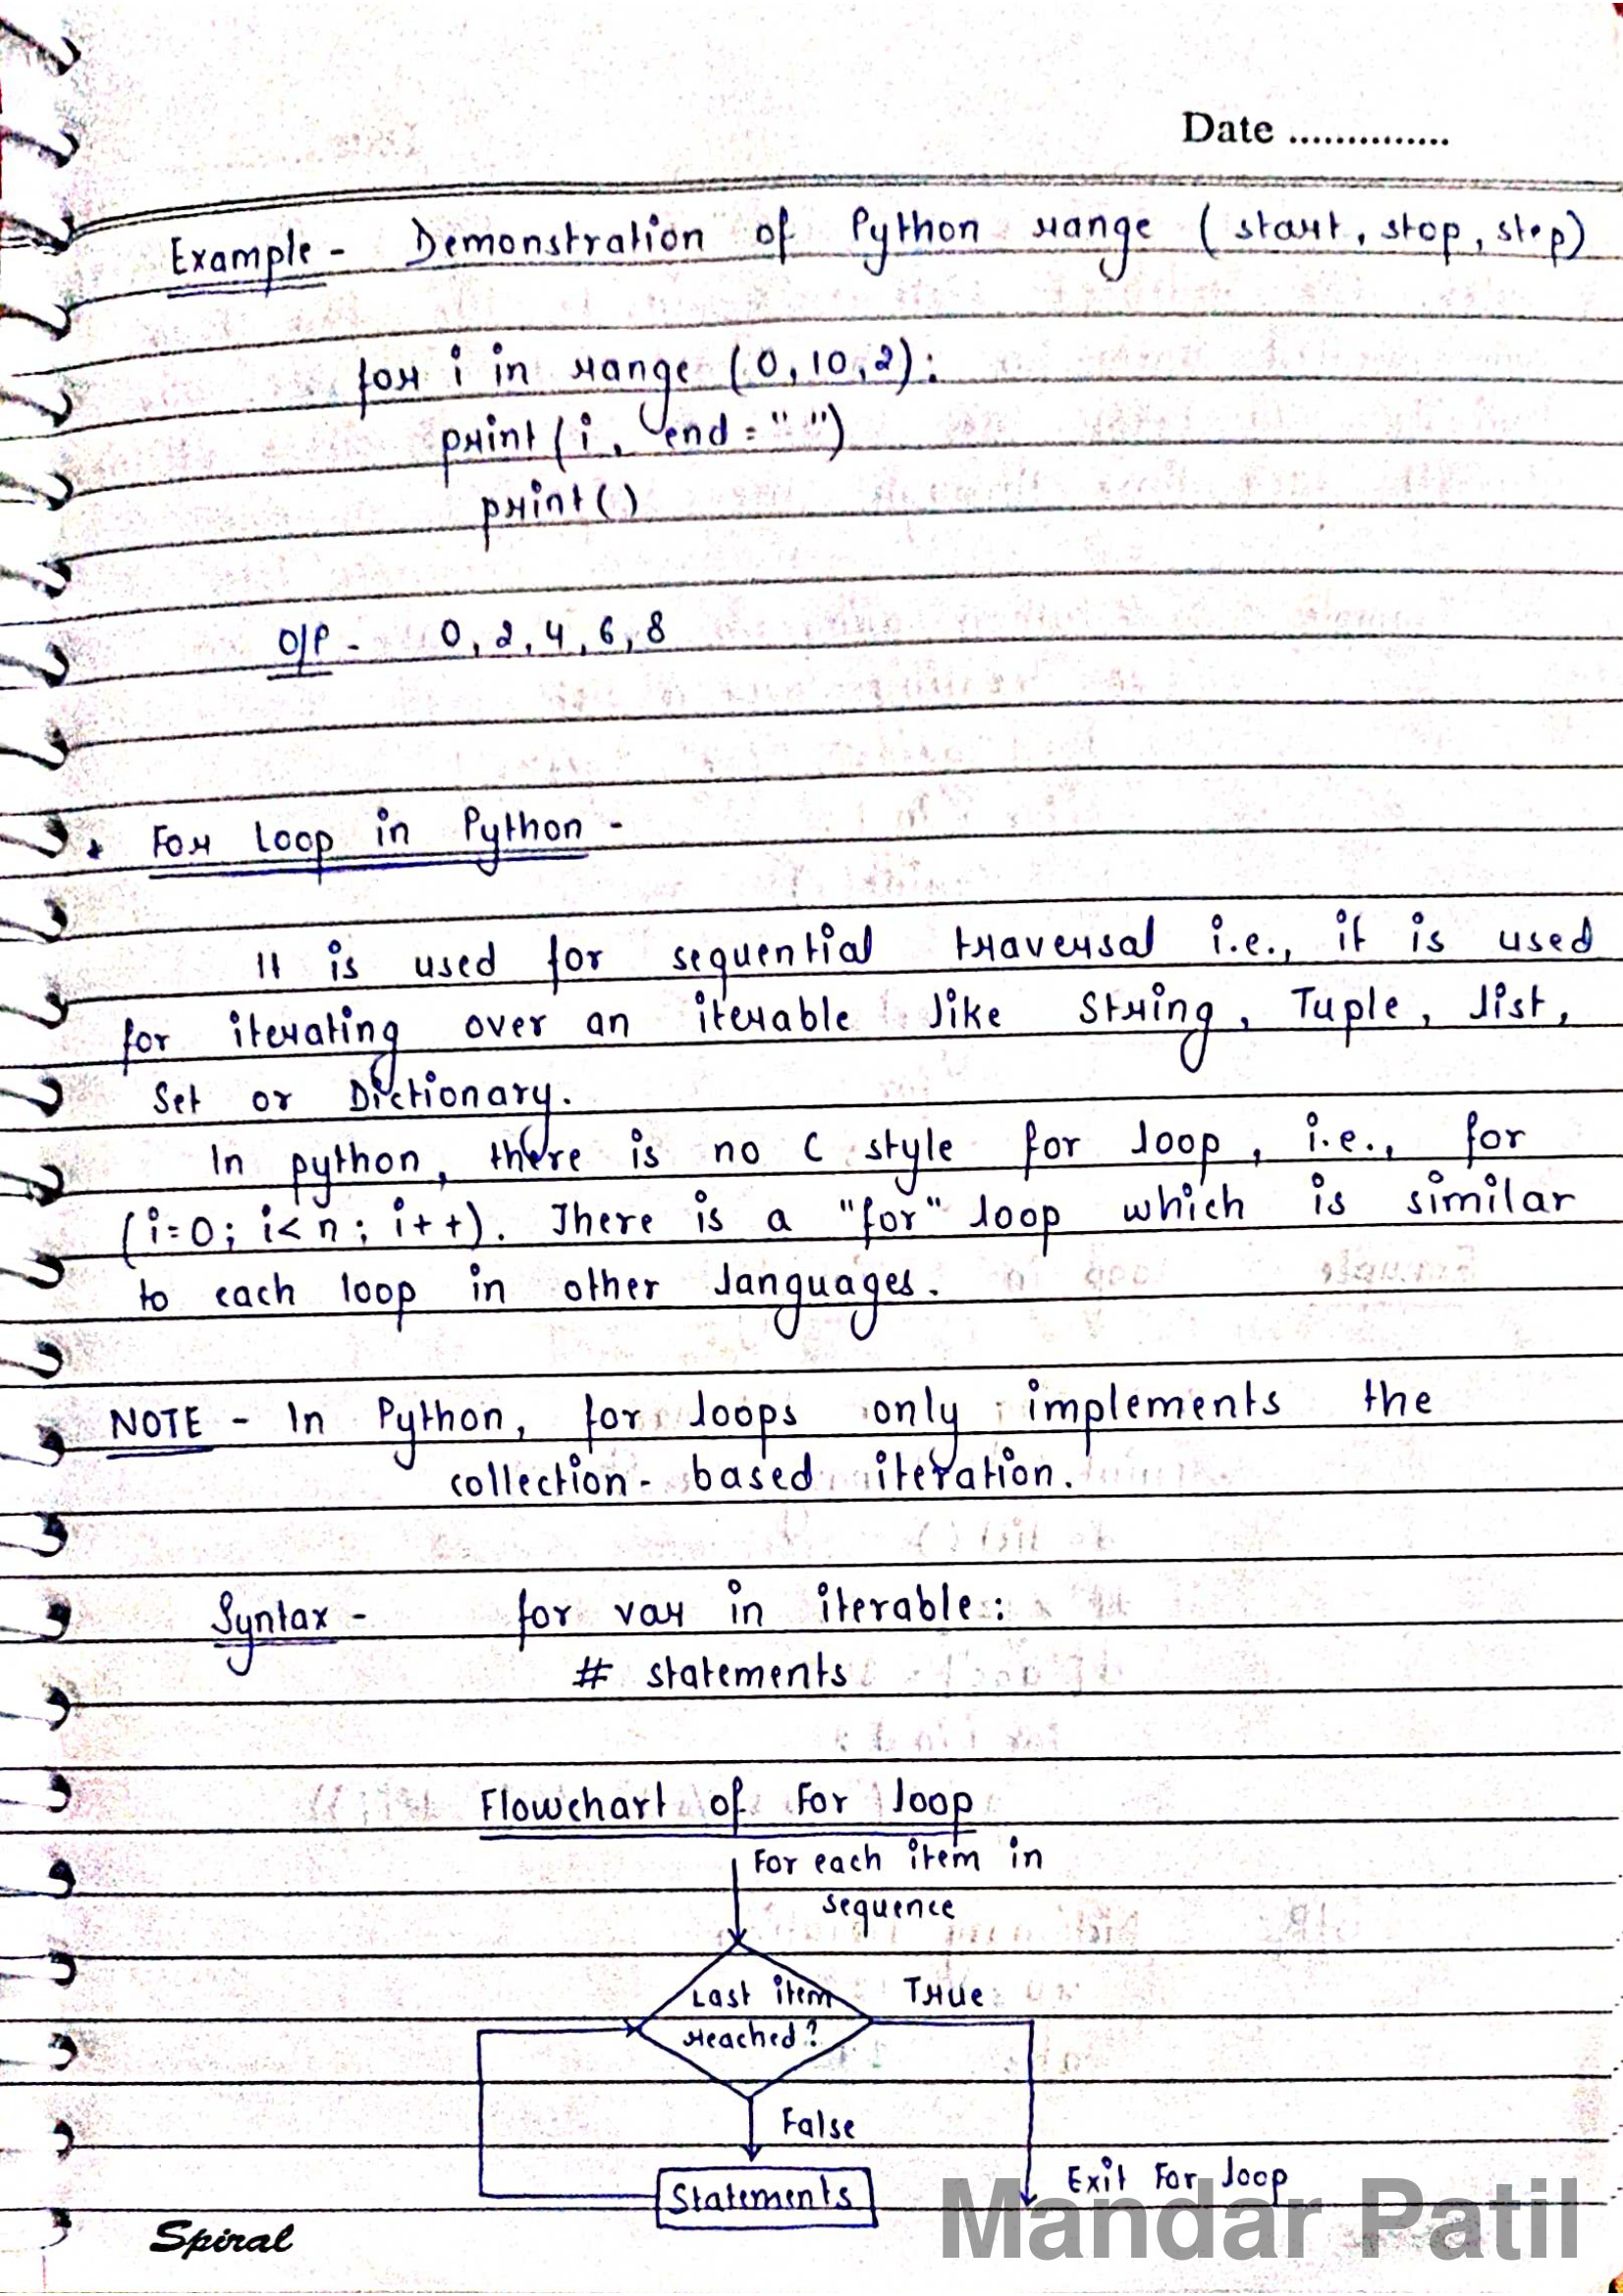 Date ..............
Example - Demonstration of Python range (start, stop, step)
for i in range (0, 10, 2):
print(i, end = " ")
print()
O/P - 0, 2, 4, 6, 8
* For Loop in Python -
It is used for sequential traversal i.e., it is used
for iterating over an iterable like String, Tuple, list,
Set or Dictionary.
In python, there is no C style for loop, i.e., for
(i=0; i<n; i++). There is a "for" loop which is similar
to each loop in other languages.
NOTE - In Python, for loops only implements the
collection-based iteration.
Syntax - for var in iterable:
# statements
Flowchart of For loop
For each item in
sequence
Last item True
reached?
False
Exit For loop
Statements
Mandar Patil
Spiral